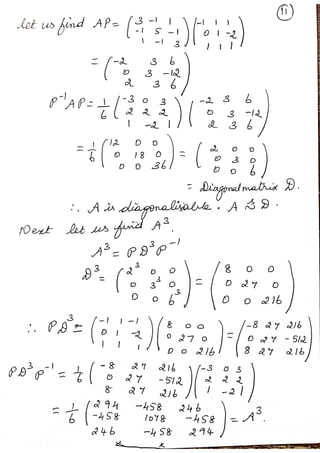 11
let us find AP = (3 -1 1 / -1 5 -1 / 1 -1 3) (-1 1 1 / 0 1 -2 / 1 1 1)
= (-2 3 6 / 0 3 -12 / 2 3 6)
P⁻¹AP = 1/6 (-3 0 3 / 2 2 2 / 1 -2 1) (-2 3 6 / 0 3 -12 / 2 3 6)
= 1/6 (12 0 0 / 0 18 0 / 0 0 36) = (2 0 0 / 0 3 0 / 0 0 6)
= Diagonal matrix D.
∴ A is diagonalisable. A ≅ D.
Next let us find A³.
A³ = PD³P⁻¹
D³ = (2³ 0 0 / 0 3³ 0 / 0 0 6³) = (8 0 0 / 0 27 0 / 0 0 216)
∴ PD³ = (-1 1 -1 / 0 1 -2 / 1 1 1) (8 0 0 / 0 27 0 / 0 0 216) = (-8 27 216 / 0 27 -512 / 8 27 216)
PD³P⁻¹ = 1/6 (-8 27 216 / 0 27 -512 / 8 27 216) (-3 0 3 / 2 2 2 / 1 -2 1)
= 1/6 (294 -458 246 / -458 1078 -458 / 246 -458 294) = A³.